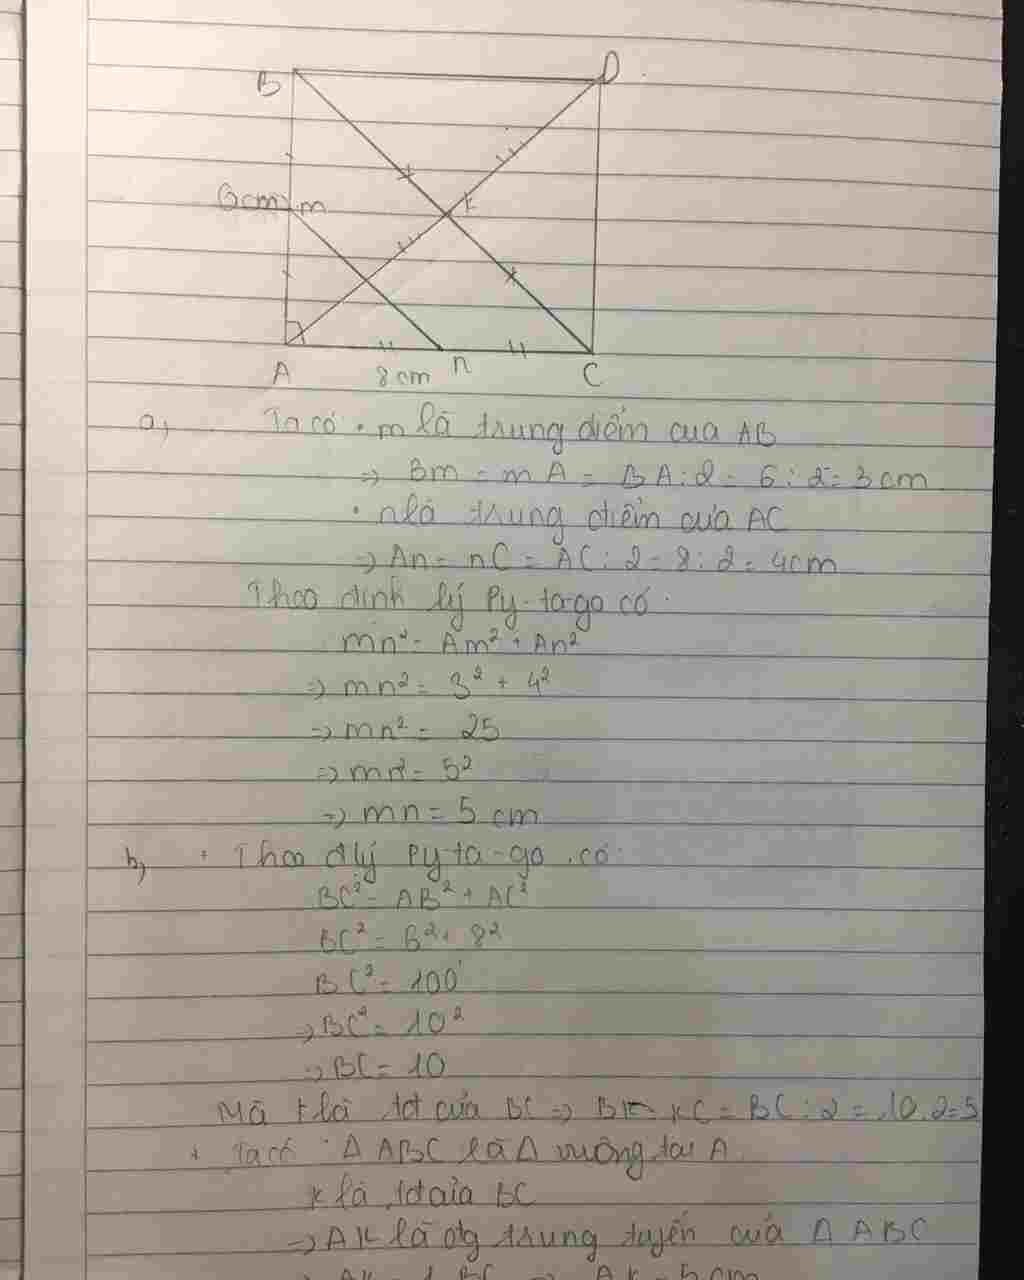 B
D
6cm
m
K
A
8cm
n
C
a, Ta có . m là trung điểm của AB
=> Bm = mA = BA : 2 = 6 : 2 = 3cm
. n là trung điểm của AC
=> An = nC = AC : 2 = 8 : 2 = 4cm
Theo định lý Py-ta-go có
mn² = Am² + An²
=> mn² = 3² + 4²
=> mn² = 25
=> mn² = 5²
=> mn = 5 cm
b, + Theo đlý Py-ta-go có
BC² = AB² + AC²
BC² = 6² + 8²
BC² = 100
=> BC² = 10²
=> BC = 10
Mà K là tđ của BC => BK = KC = BC : 2 = 10 : 2 = 5
+ Ta có Δ ABC là Δ vuông tại A
K là tđ của BC
=> AK là đg trung tuyến của Δ ABC
AK = 5 cm